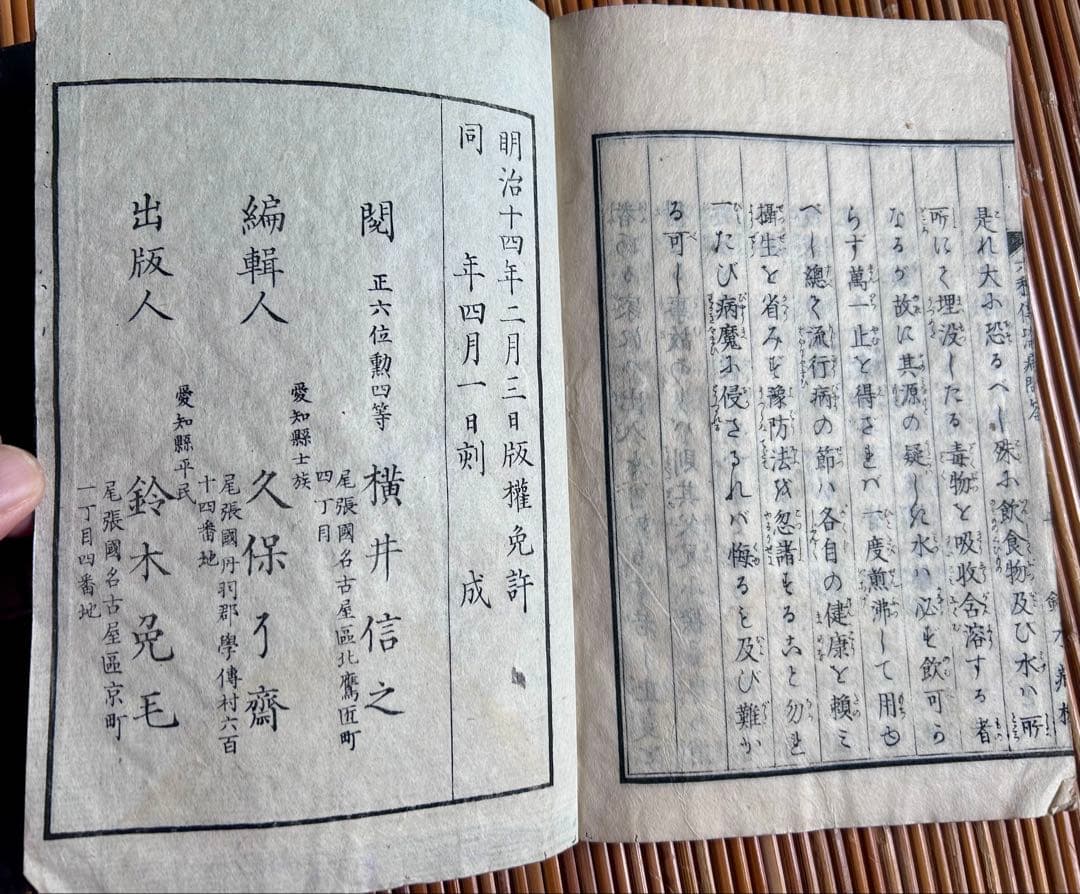 是れ大ふ恐るべし殊ふ飲食物及び水ハ所
所にく埋没したる毒物と吸收含溶する者
なるが故に其源の疑しき水ハ必も飲可か
らす萬一止と得さをハ一度煎沸して用ゆ
べし總く流行病の節ハ各自の健康と頼ミ
攝生と省みを豫防法を忽諸もるふと勿を
一たび病魔ふ侵さるれバ悔ると及び難か
る可し
明治十四年二月三日版權免許
同年四月一日刻成
閲 正六位勲四等 橫井信之
尾張國名古屋區北鷹匠町
四丁目
編輯人 愛知縣士族 久保了齋
尾張國丹羽郡學傳村六百
十四番地
出版人 愛知縣平民 鈴木免毛
尾張國名古屋區京町
一丁目四番地